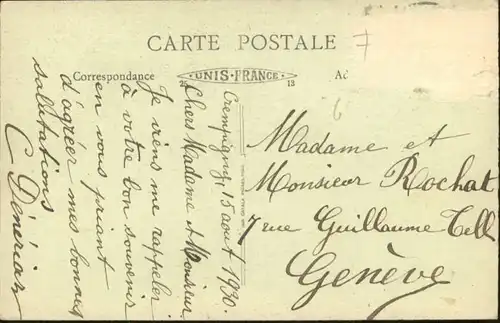 CARTE POSTALE
7
Correspondance
UNIS-FRANCE
25
13
Ad
6
Crempigny, 15 août 1930.
Chers Madame et Monsieur
Je viens me rappeler
à votre bon souvenir
en vous priant
d'agréer mes bonnes
salutations
Madame et
Monsieur Rochat
7 rue Guillaume Tell
Genève